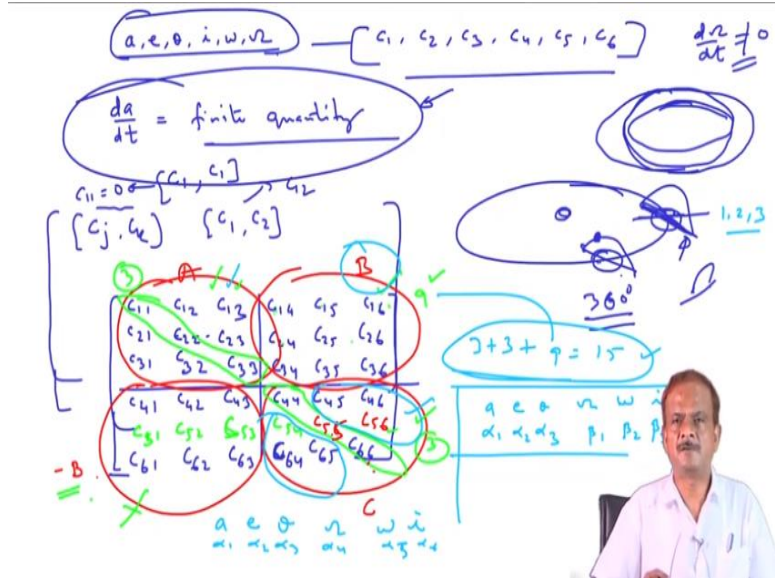 a, e, θ, i, w, Ω — [ C1, C2, C3, C4, C5, C6 ] dΩ/dt ≠ 0
da/dt = finite quantity
C11 = 0 ← [C1, C1] → C12
[Cj, Ck] [C1, C2]
1, 2, 3
P
360°
3 A B
9 ✓
C11 C12 C13 C14 C15 C16
C21 C22 C23 C24 C25 C26
C31 C32 C33 C34 C35 C36
3+3+9 = 15 ✓
C41 C42 C43 C44 C45 C46
C51 C52 C53 C54 C55 C56
C61 C62 C63 C64 C65 C66
3
-B
C
a e θ Ω w i
α1 α2 α3 β1 β2 β
a e θ Ω w i
α1 α2 α3 α4 α5 α6